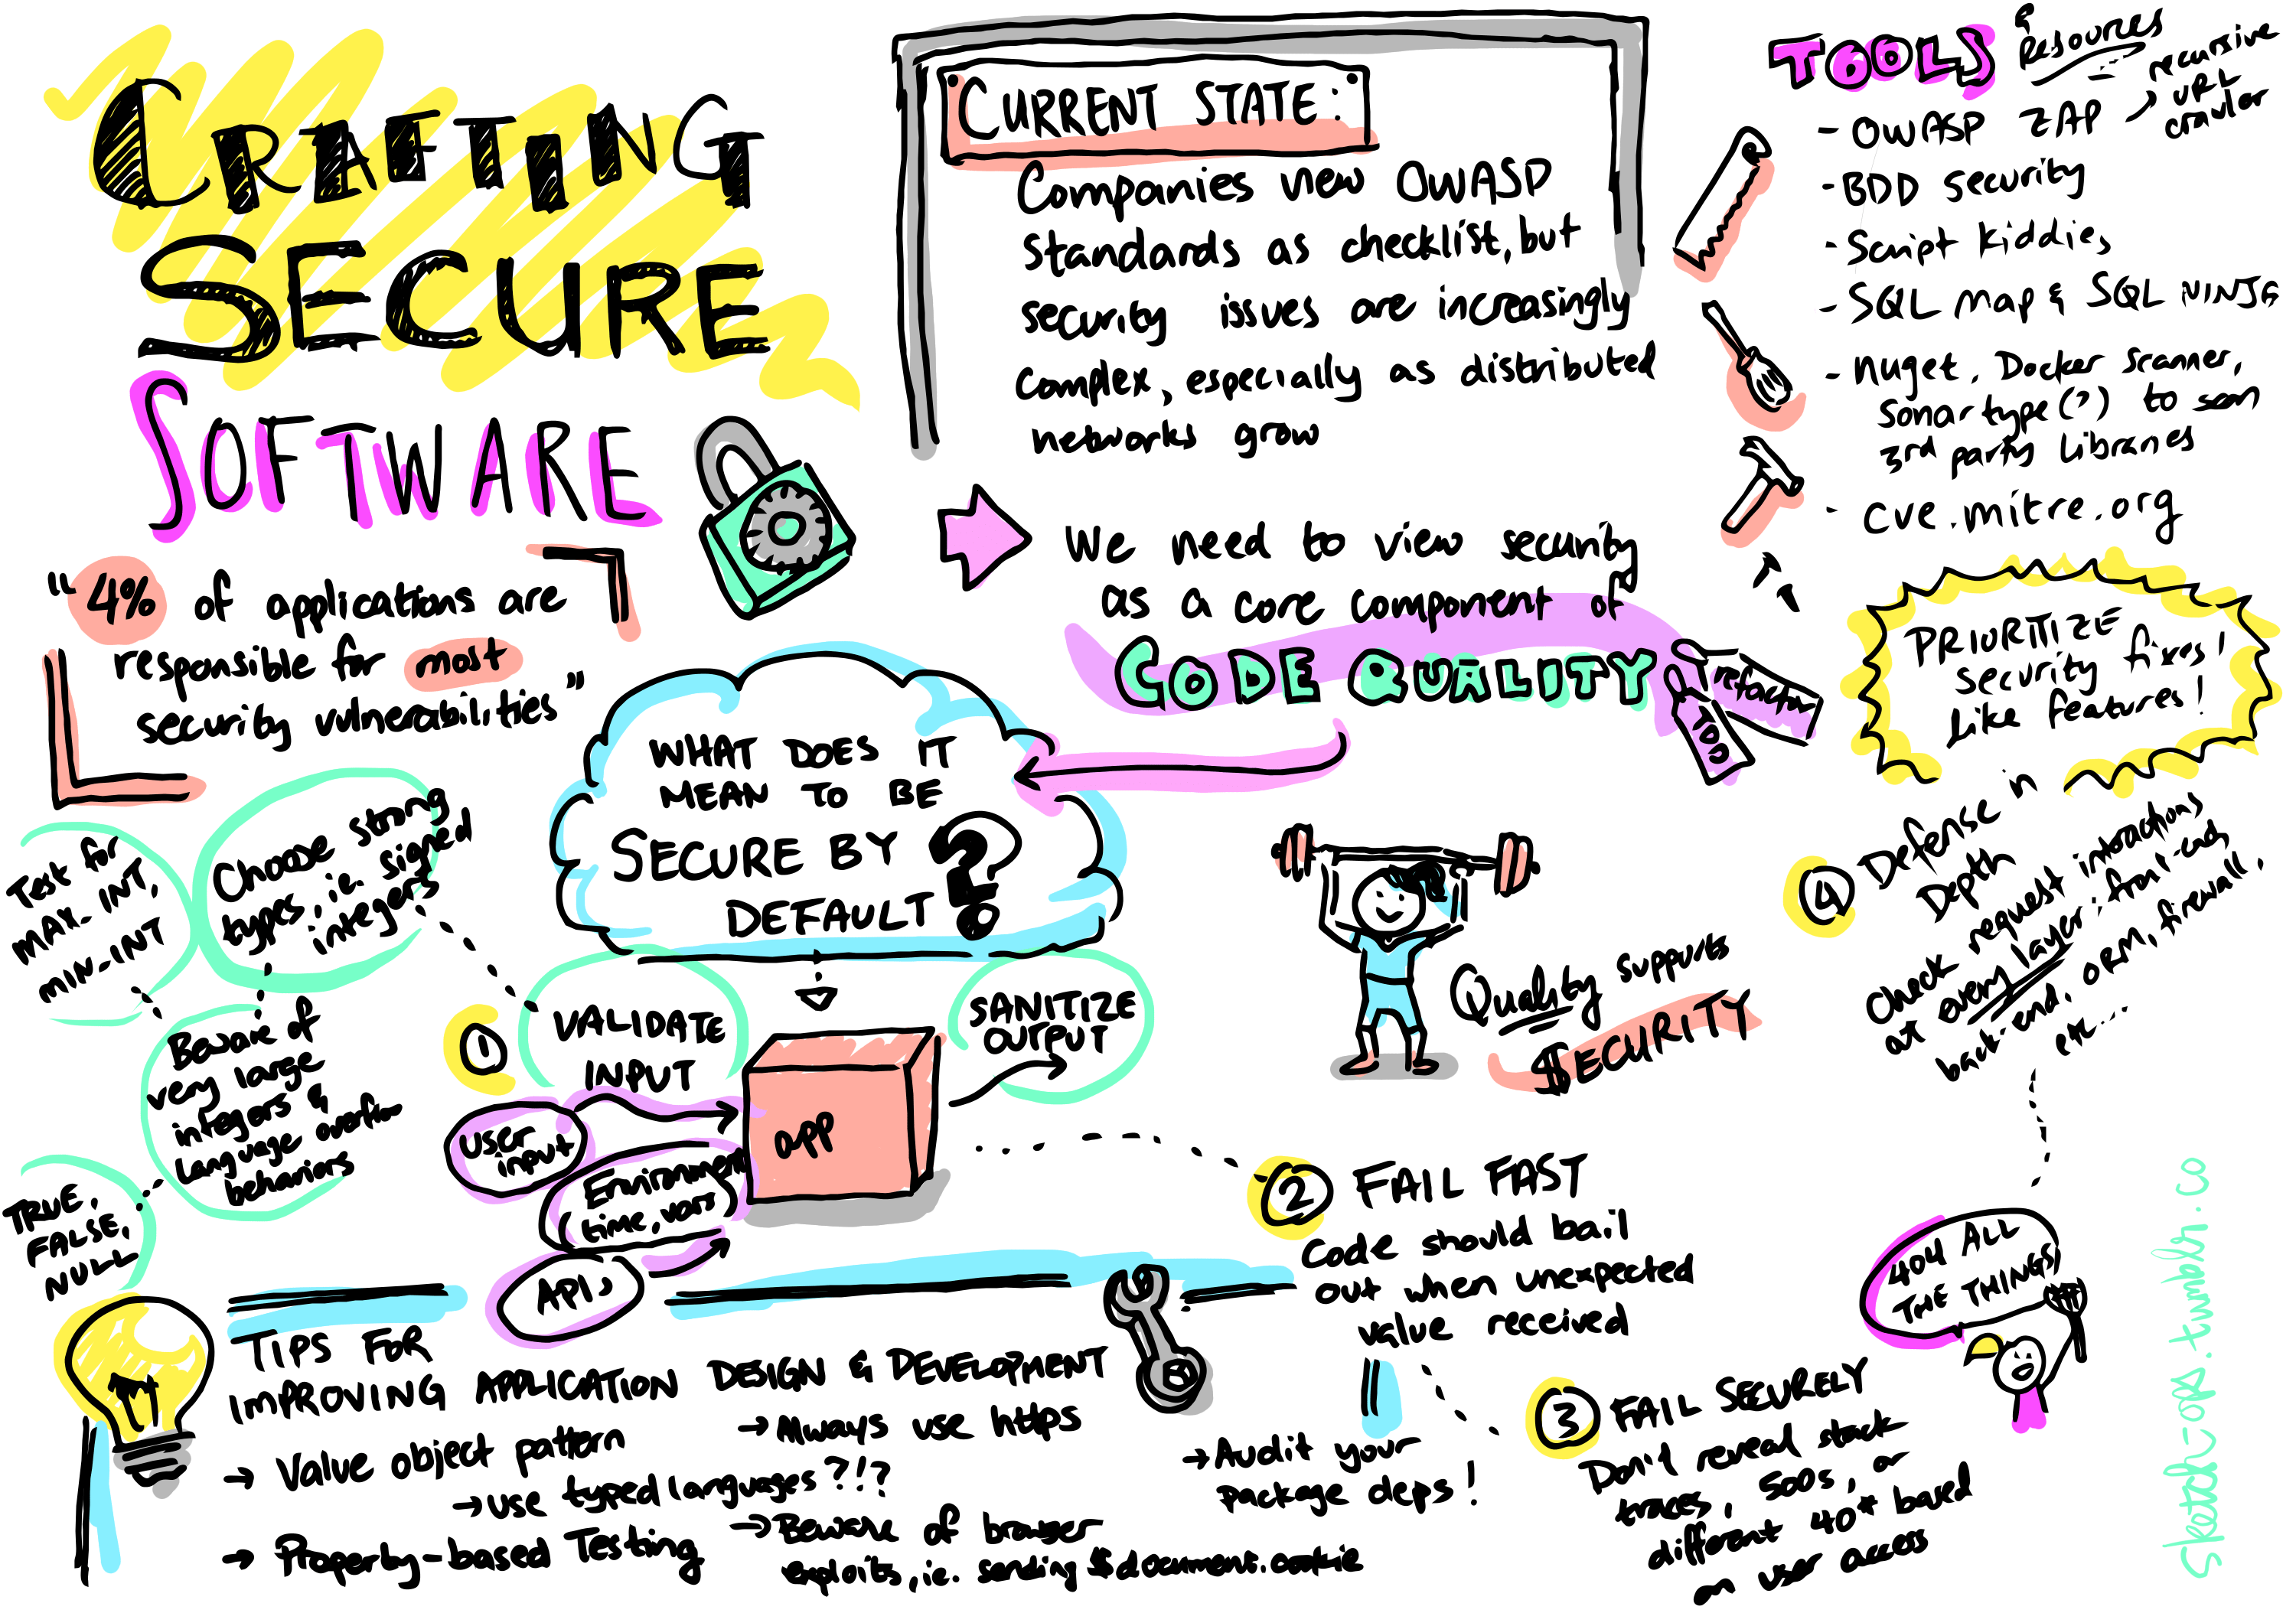 CRAFTING
SECURE
SOFTWARE
"4% of applications are
responsible for most
security vulnerabilities"
CURRENT STATE:
Companies view OWASP
standards as checklist, but
security issues are increasingly
complex, especially as distributed
networks grow
We need to view security
as a core component of
CODE QUALITY
refactor
TDD
TOOLS
& Resources
- OWASP ZAP → recursive
URL
crawler
- BDD Security
- Script Kiddies
- SQL Map & SQL NINJA
- Nuget, Docker Scanner,
Sonartype(?) to scan
3rd party Libraries
- cve.mitre.org
PRIORITIZE
security fixes!
Like features!
WHAT DOES IT
MEAN TO BE
SECURE BY
DEFAULT ?
Test for
MAX_INT,
MIN_INT
Choose strong
types, ie. signed
integers
Beware of
very large
integers &
language overflow
behaviors
TRUE,
FALSE,
NULL
1
VALIDATE
INPUT
User
input
Environment
(time, vars)
APIs
app
SANITIZE
OUTPUT
Quality supports
$ECURITY
2 FAIL FAST
Code should bail
out when unexpected
value received
3 FAIL SECURELY
Don't reveal stack
traces, 500s, or
different 40* based
on user access
4 Defense in
Depth
Check request interactions
at every layer; front-end,
back-end, ORM, firewall,
etc...
404 ALL
THE THINGS
TIPS FOR
IMPROVING APPLICATION DESIGN & DEVELOPMENT
→ Value object pattern
→ use typed languages?!?
→ Property-based Testing
→ Always use https
→ Beware of browser
exploits, ie. sending $document.cookie
→ Audit your
package deps!
sketch-ops.tumblr.co